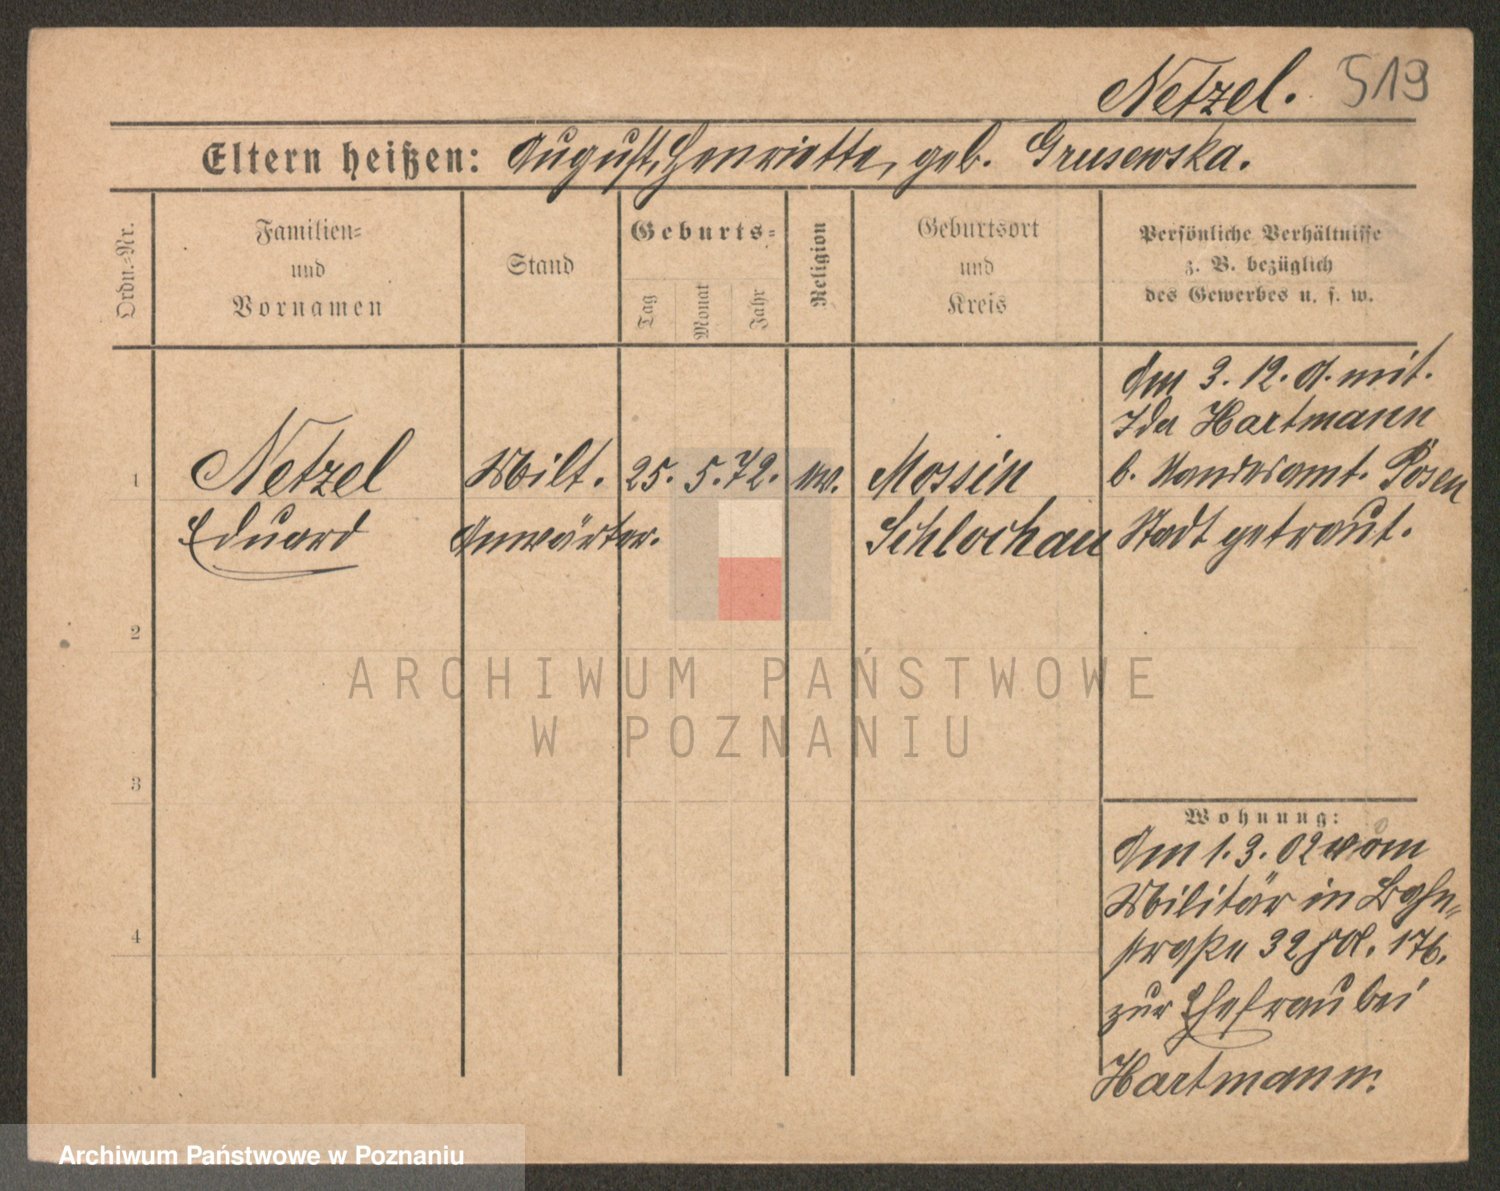 Netzel. 519
Eltern heißen: August, Henriette, geb. Grusewska.
Ordn.=Nr.
Familien=
und
Vornamen
Stand
Geburts=
Tag
Monat
Jahr
Religion
Geburtsort
und
Kreis
Persönliche Verhältnisse
z. B. bezüglich
des Gewerbes u. s. w.
1
Netzel
Eduard
Milt.
Anwärter.
25. 5. 72.
ev.
Mossin
Schlochau
Am 3. 12. 01. mit.
Ida Hartmann
b. Standesamt. Posen
Stadt getraut.
2
3
4
Wohnung:
Am 1. 3. 02 vom
Militär in
straße 32 176.
zur Ehefrau bei
Hartmann.
ARCHIWUM PAŃSTWOWE
W POZNANIU
Archiwum Państwowe w Poznaniu